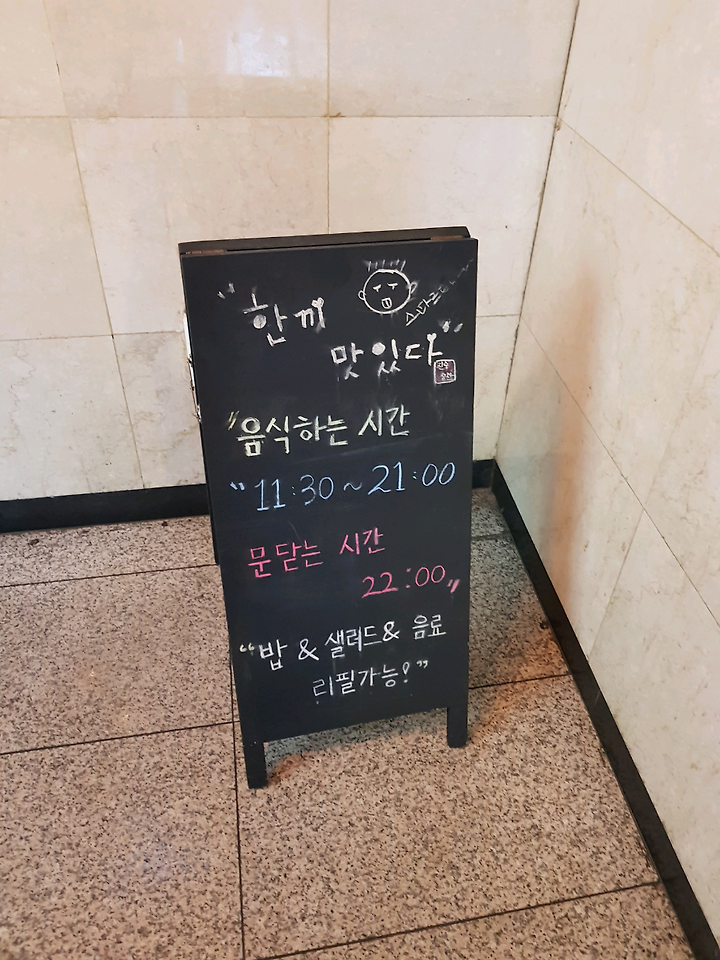 "한끼
맛있다"
"음식하는 시간
"11:30 ~ 21:00
문닫는 시간
22:00"
"밥 & 샐러드 & 음료
리필가능!"